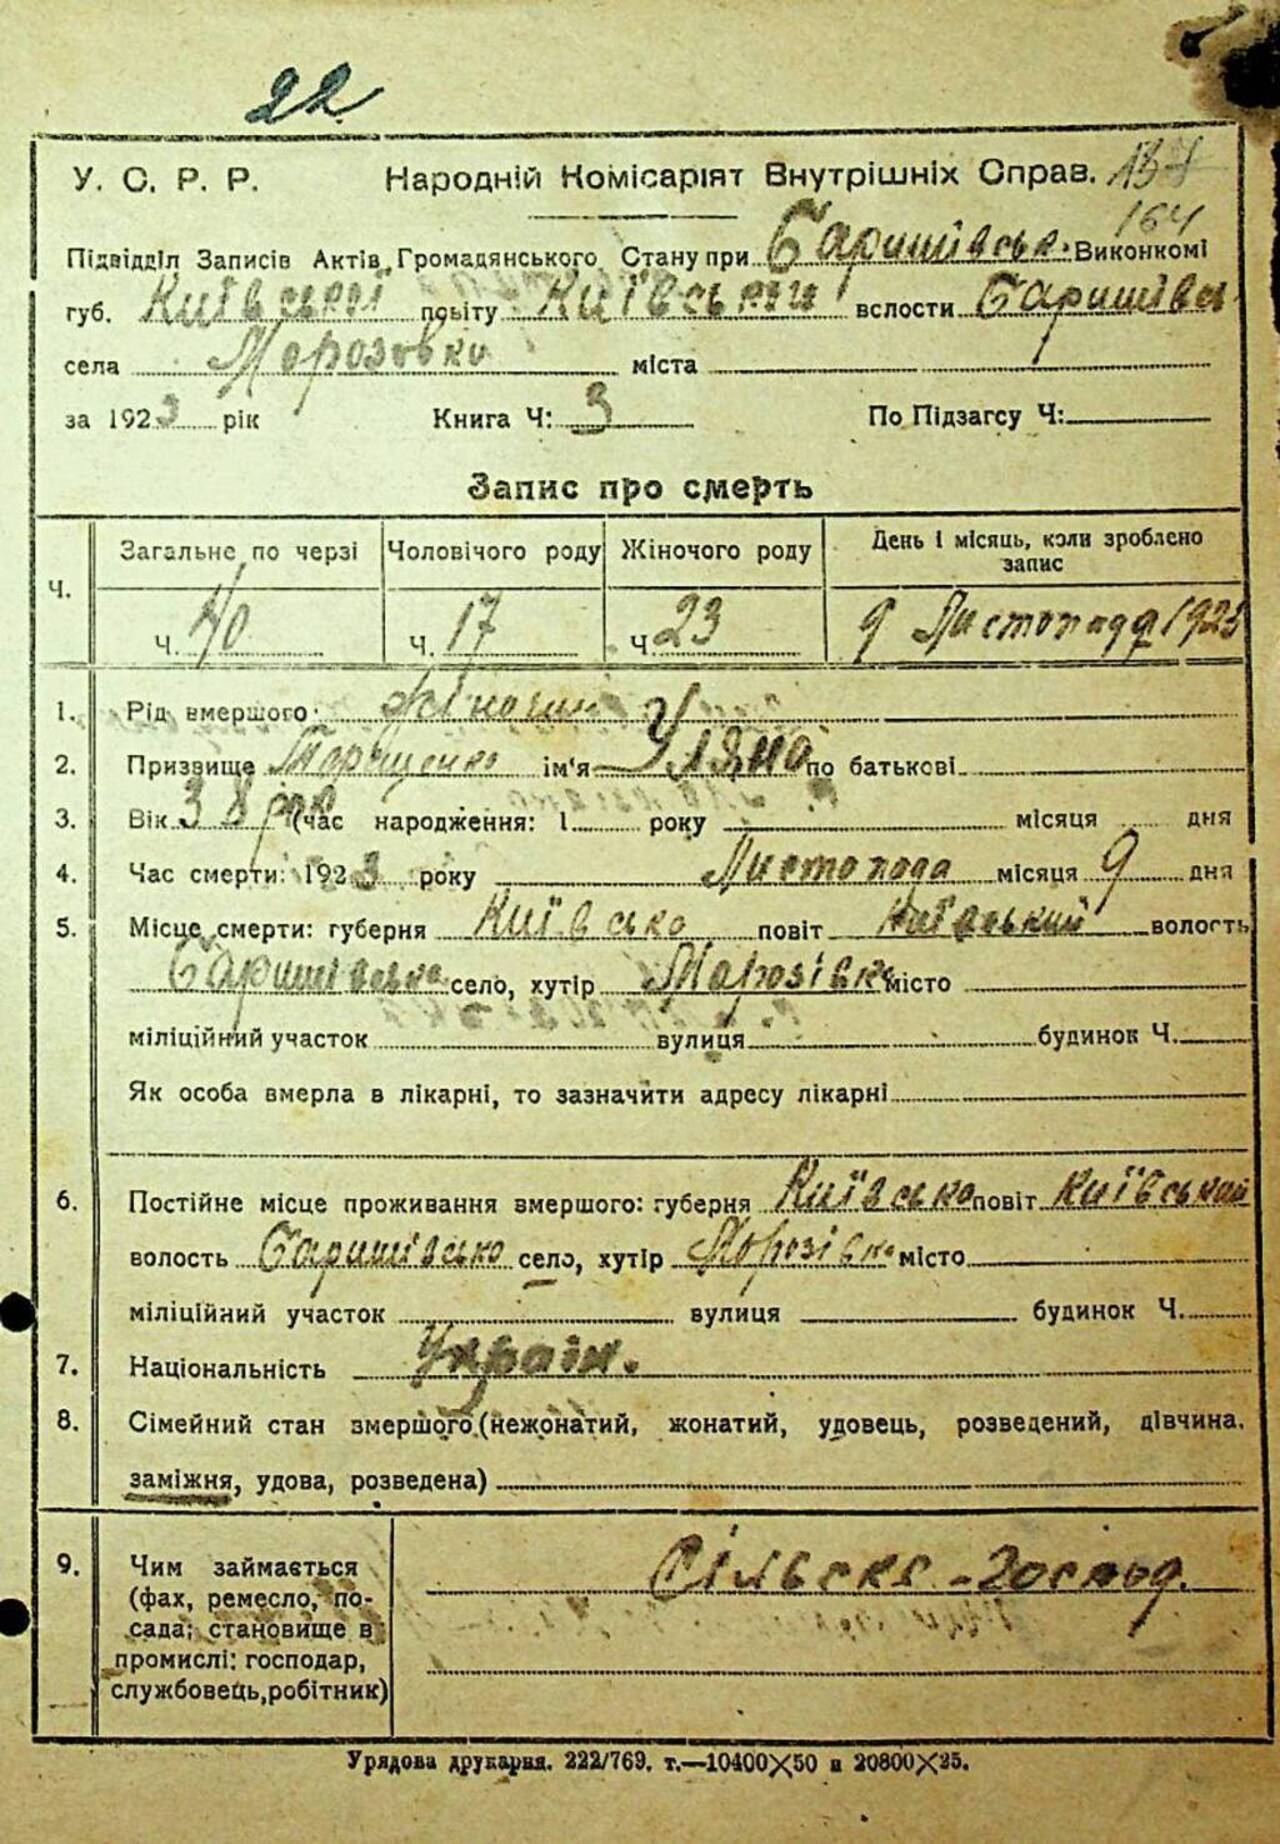 22
У. С. Р. Р. Народній Комісаріят Внутрішніх Справ. 137
164
Підвідділ Записів Актів Громадянського Стану при Баришівськ. Виконкомі
губ. Київської повіту Київськ вслости Баришівсь
села Морозовка міста
за 1923 рік Книга Ч: 3 По Підзагсу Ч:
Запис про смерть
Ч. Загальне по черзі Чоловічого роду Жіночого роду День і місяць, коли зроблено запис
Ч. 40 Ч. 17 Ч. 23 9 Листопада 1923
1. Рід вмершого Жіночий
2. Призвище ім'я Уляна по батькові
3. Вік 38 рок (час народження: 1 року місяця дня
4. Час смерти: 1923 року Листопада місяця 9 дня
5. Місце смерти: губерня Київська повіт Київський волость
Баришівська село, хутір Морозівка місто
міліційний участок вулиця будинок Ч.
Як особа вмерла в лікарні, то зазначити адресу лікарні
6. Постійне місце проживання вмершого: губерня Київська повіт Київський
волость Баришівсько село, хутір Морозівка місто
міліційний участок вулиця будинок Ч.
7. Національність Україн.
8. Сімейний стан вмершого (нежонатий, жонатий, удовець, розведений, дівчина,
заміжня, удова, розведена)
9. Чим займається Сільске-господ.
(фах, ремесло, по-
сада; становище в
промислі: господар,
службовець, робітник)
Урядова друкарня. 222/769. т.—10400×50 и 20800×25.